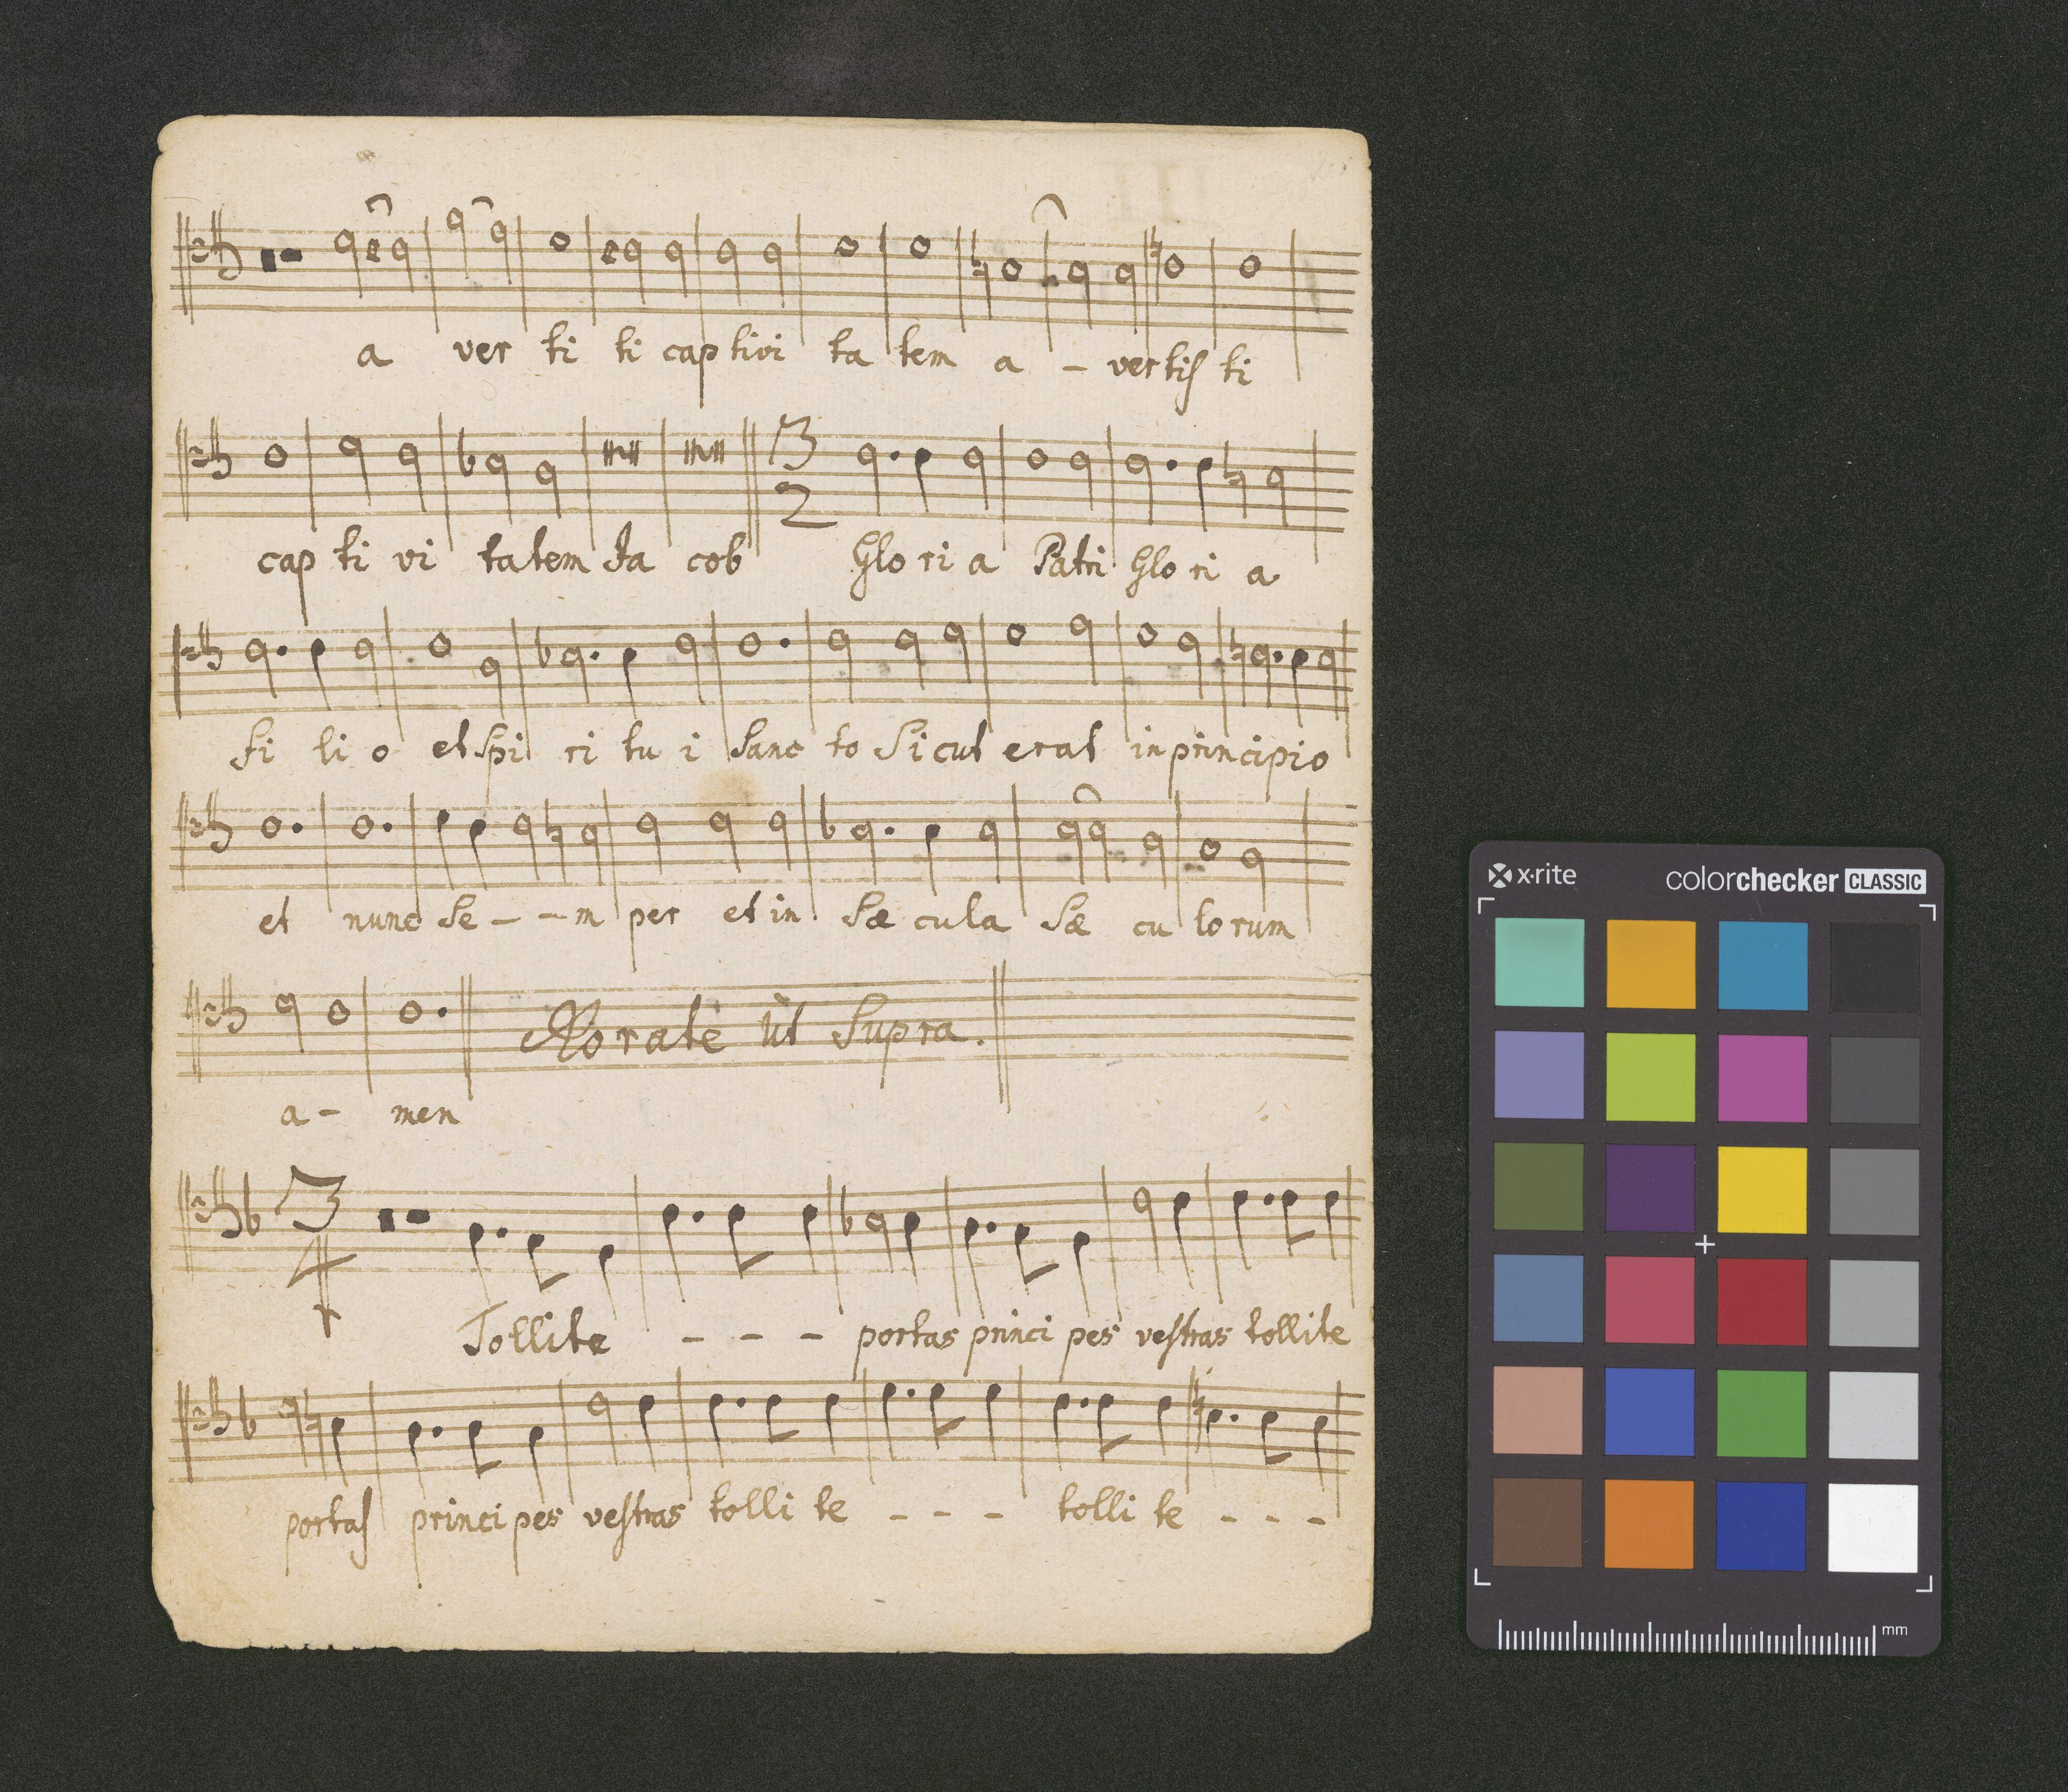 a ver ti ti cap tivi ta tem a - ver tiſ ti
cap ti vi ta tem Ja cob Glo ri a Patri Glo ri a
3
2
fi li o et Spi ri tu i Sanc to Si cut erat in principio
et nunc Se - - m per et in Sæ cula Sæ cu lo rum
Rorate ùt Supra.
a - men
3
4
Tollite - - - portas princi pes veſtras tollite
portaſ princi pes veſtras tolli te - - - tolli te - - -
x·rite colorchecker CLASSIC
mm